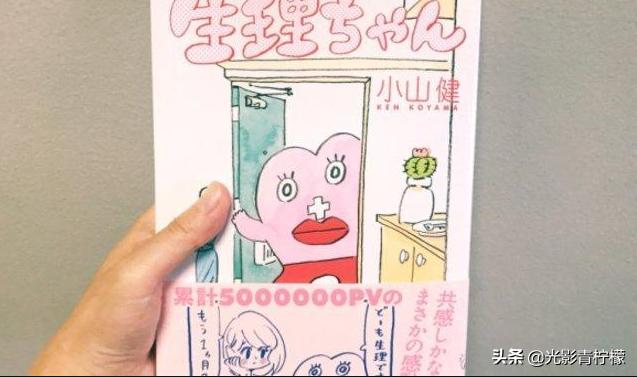 生理ちゃん
小山健
KEN KOYAMA
累計5000000PVの
共感しかな
まさかの感
どーも生理で
もう1ヵ月
头条 @光影青柠檬